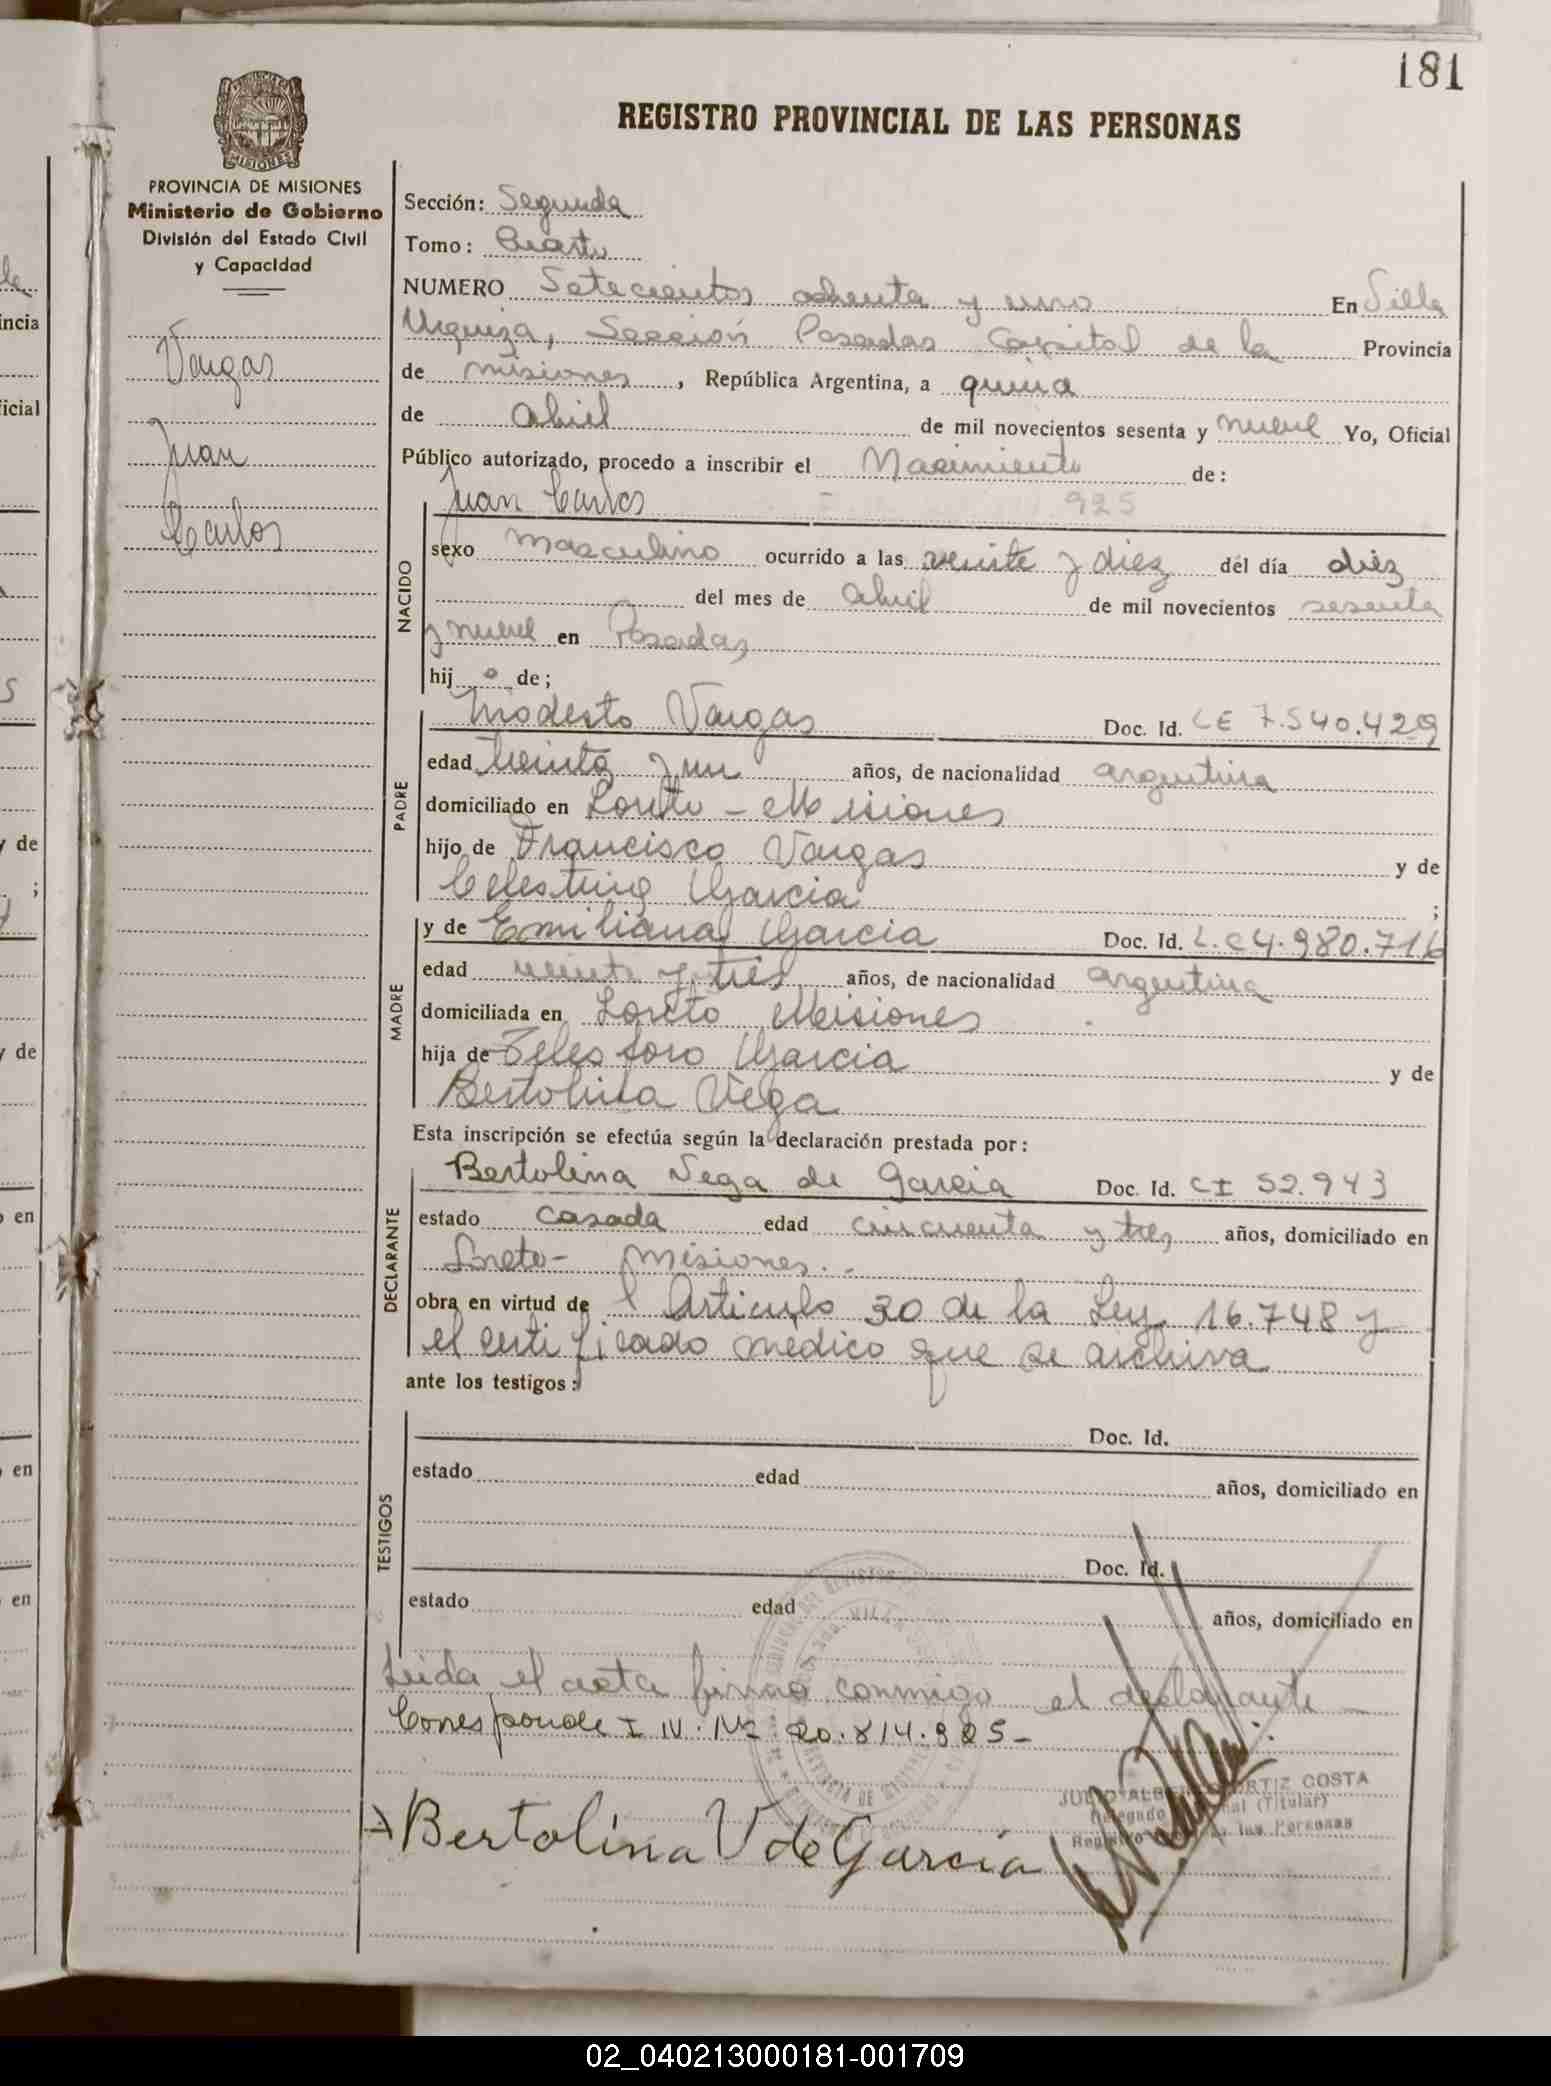 181
REGISTRO PROVINCIAL DE LAS PERSONAS
PROVINCIA DE MISIONES
Ministerio de Gobierno
División del Estado Civil
y Capacidad
Vargas
Juan
Carlos
Sección: Segunda
Tomo: Cuarto
NUMERO Setecientos ochenta y uno En Villa
Urquiza, Sección Posadas Capital de la Provincia
de misiones, República Argentina, a quince
de abril de mil novecientos sesenta y nueve Yo, Oficial
Público autorizado, procedo a inscribir el Nacimiento de:
Juan Carlos 925
NACIDO
sexo masculino ocurrido a las veinte y diez del día diez
del mes de abril de mil novecientos sesenta
y nueve en Posadas
hijo de;
PADRE
Modesto Vargas Doc. Id. LE 7.540.429
edad treinta y un años, de nacionalidad argentina
domiciliado en Loreto - Misiones
hijo de Francisco Vargas y de
Celestina Garcia ;
MADRE
y de Emiliana Garcia Doc. Id. L.C 4.980.716
edad veinte y tres años, de nacionalidad argentina
domiciliada en Loreto Misiones
hija de Telesforo Garcia y de
Bertolina Vega
Esta inscripción se efectúa según la declaración prestada por:
DECLARANTE
Bertolina Vega de Garcia Doc. Id. CI 52.943
estado casada edad cincuenta y tres años, domiciliado en
Loreto - misiones.-
obra en virtud de l Articulo 30 de la Ley 16.748 y
el certificado medico que se archiva
ante los testigos:
TESTIGOS
Doc. Id.
estado edad años, domiciliado en
Doc. Id.
estado edad años, domiciliado en
Leida el acta firma conmigo el declarante
Corresponde I N. Nº 20.814.925-
JULIO ORTIZ COSTA
Delegado (Titular)
Registro las Personas
Bertolina V de Garcia
02_040213000181-001709